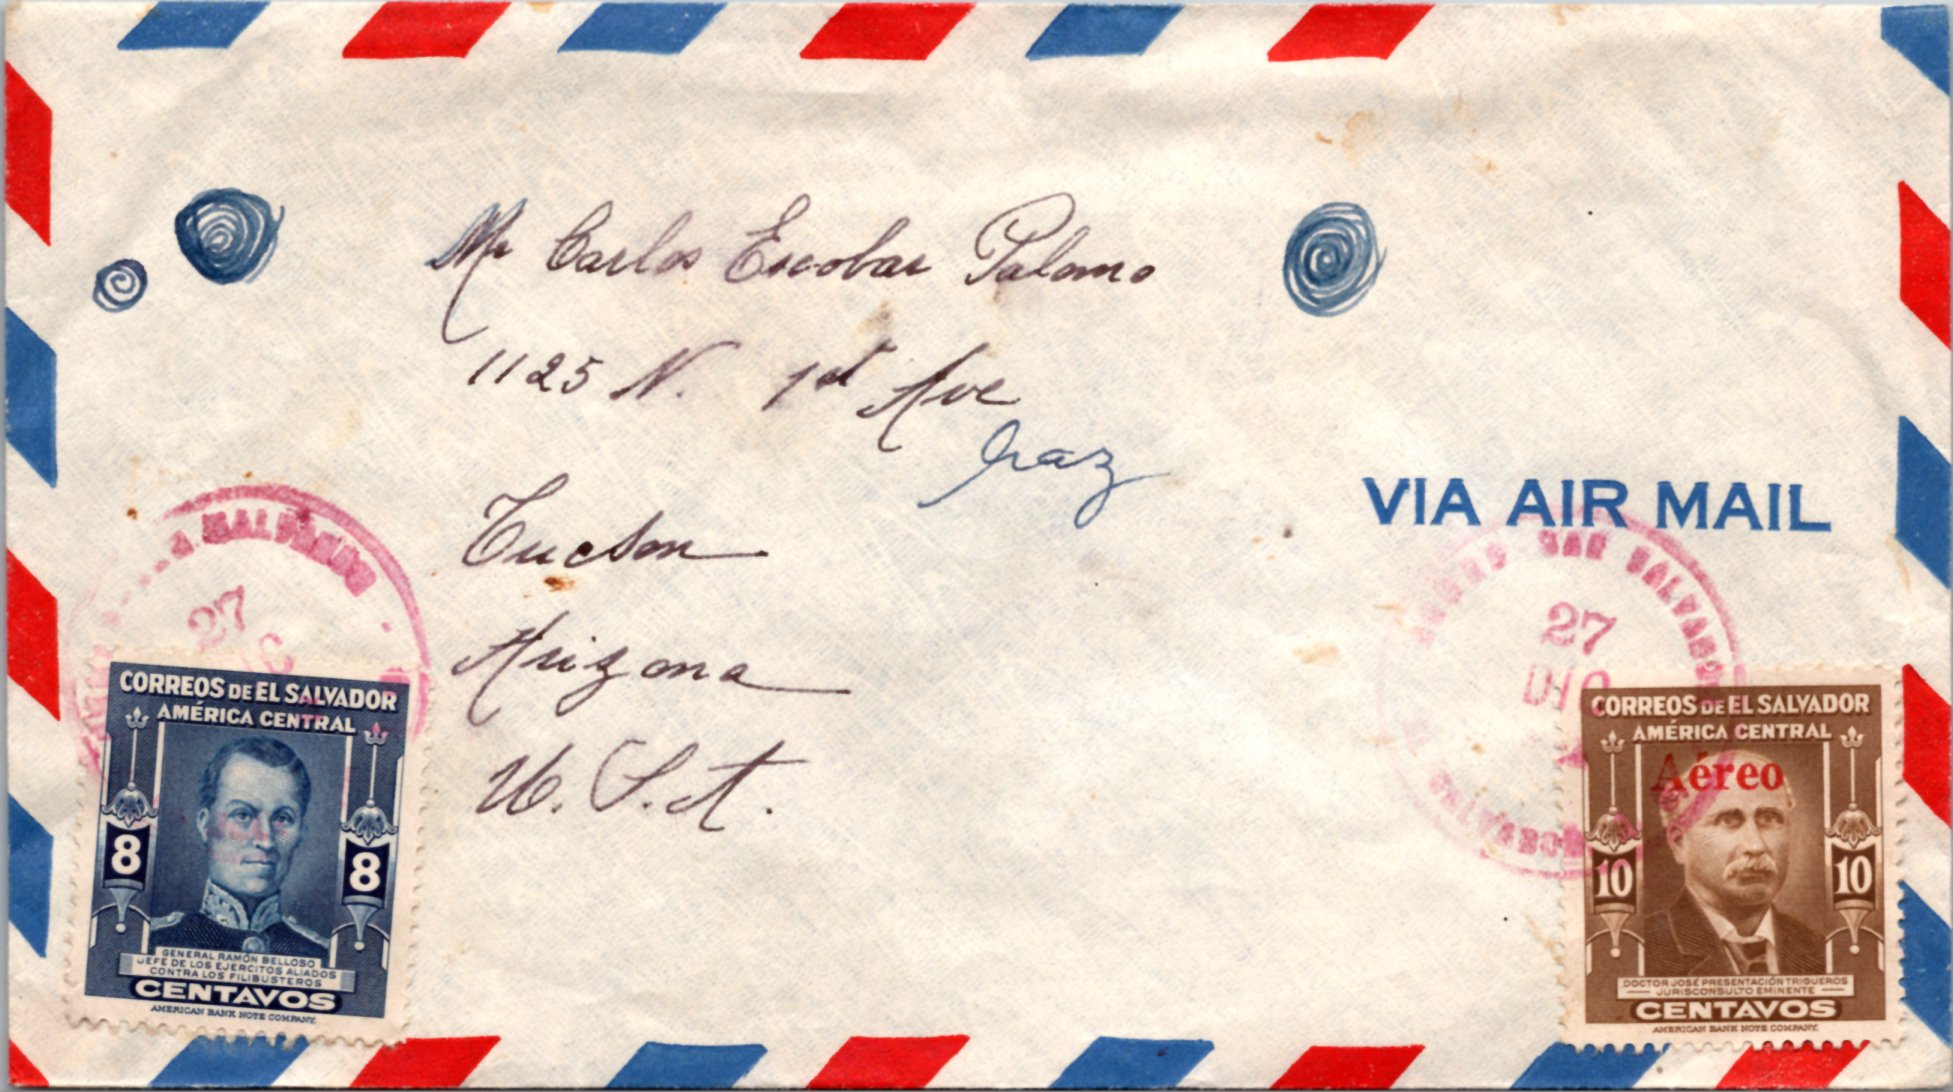 Mr Carlos Escobar Palomo
1125 N. 1st Ave
Tucson
Arizona
U.S.A.
VIA AIR MAIL
SALVADOR
27
CORREOS DE EL SALVADOR
AMÉRICA CENTRAL
8 8
GENERAL RAMÓN BELLOSO
JEFE DE LOS EJERCITOS ALIADOS
CONTRA LOS FILIBUSTEROS
CENTAVOS
AMERICAN BANK NOTE COMPANY.
SAN SALVADOR
27
DIC
SALVADOR
CORREOS DE EL SALVADOR
AMÉRICA CENTRAL
Aéreo
10 10
DOCTOR JOSÉ PRESENTACIÓN TRIGUEROS
JURISCONSULTO EMINENTE
CENTAVOS
AMERICAN BANK NOTE COMPANY.